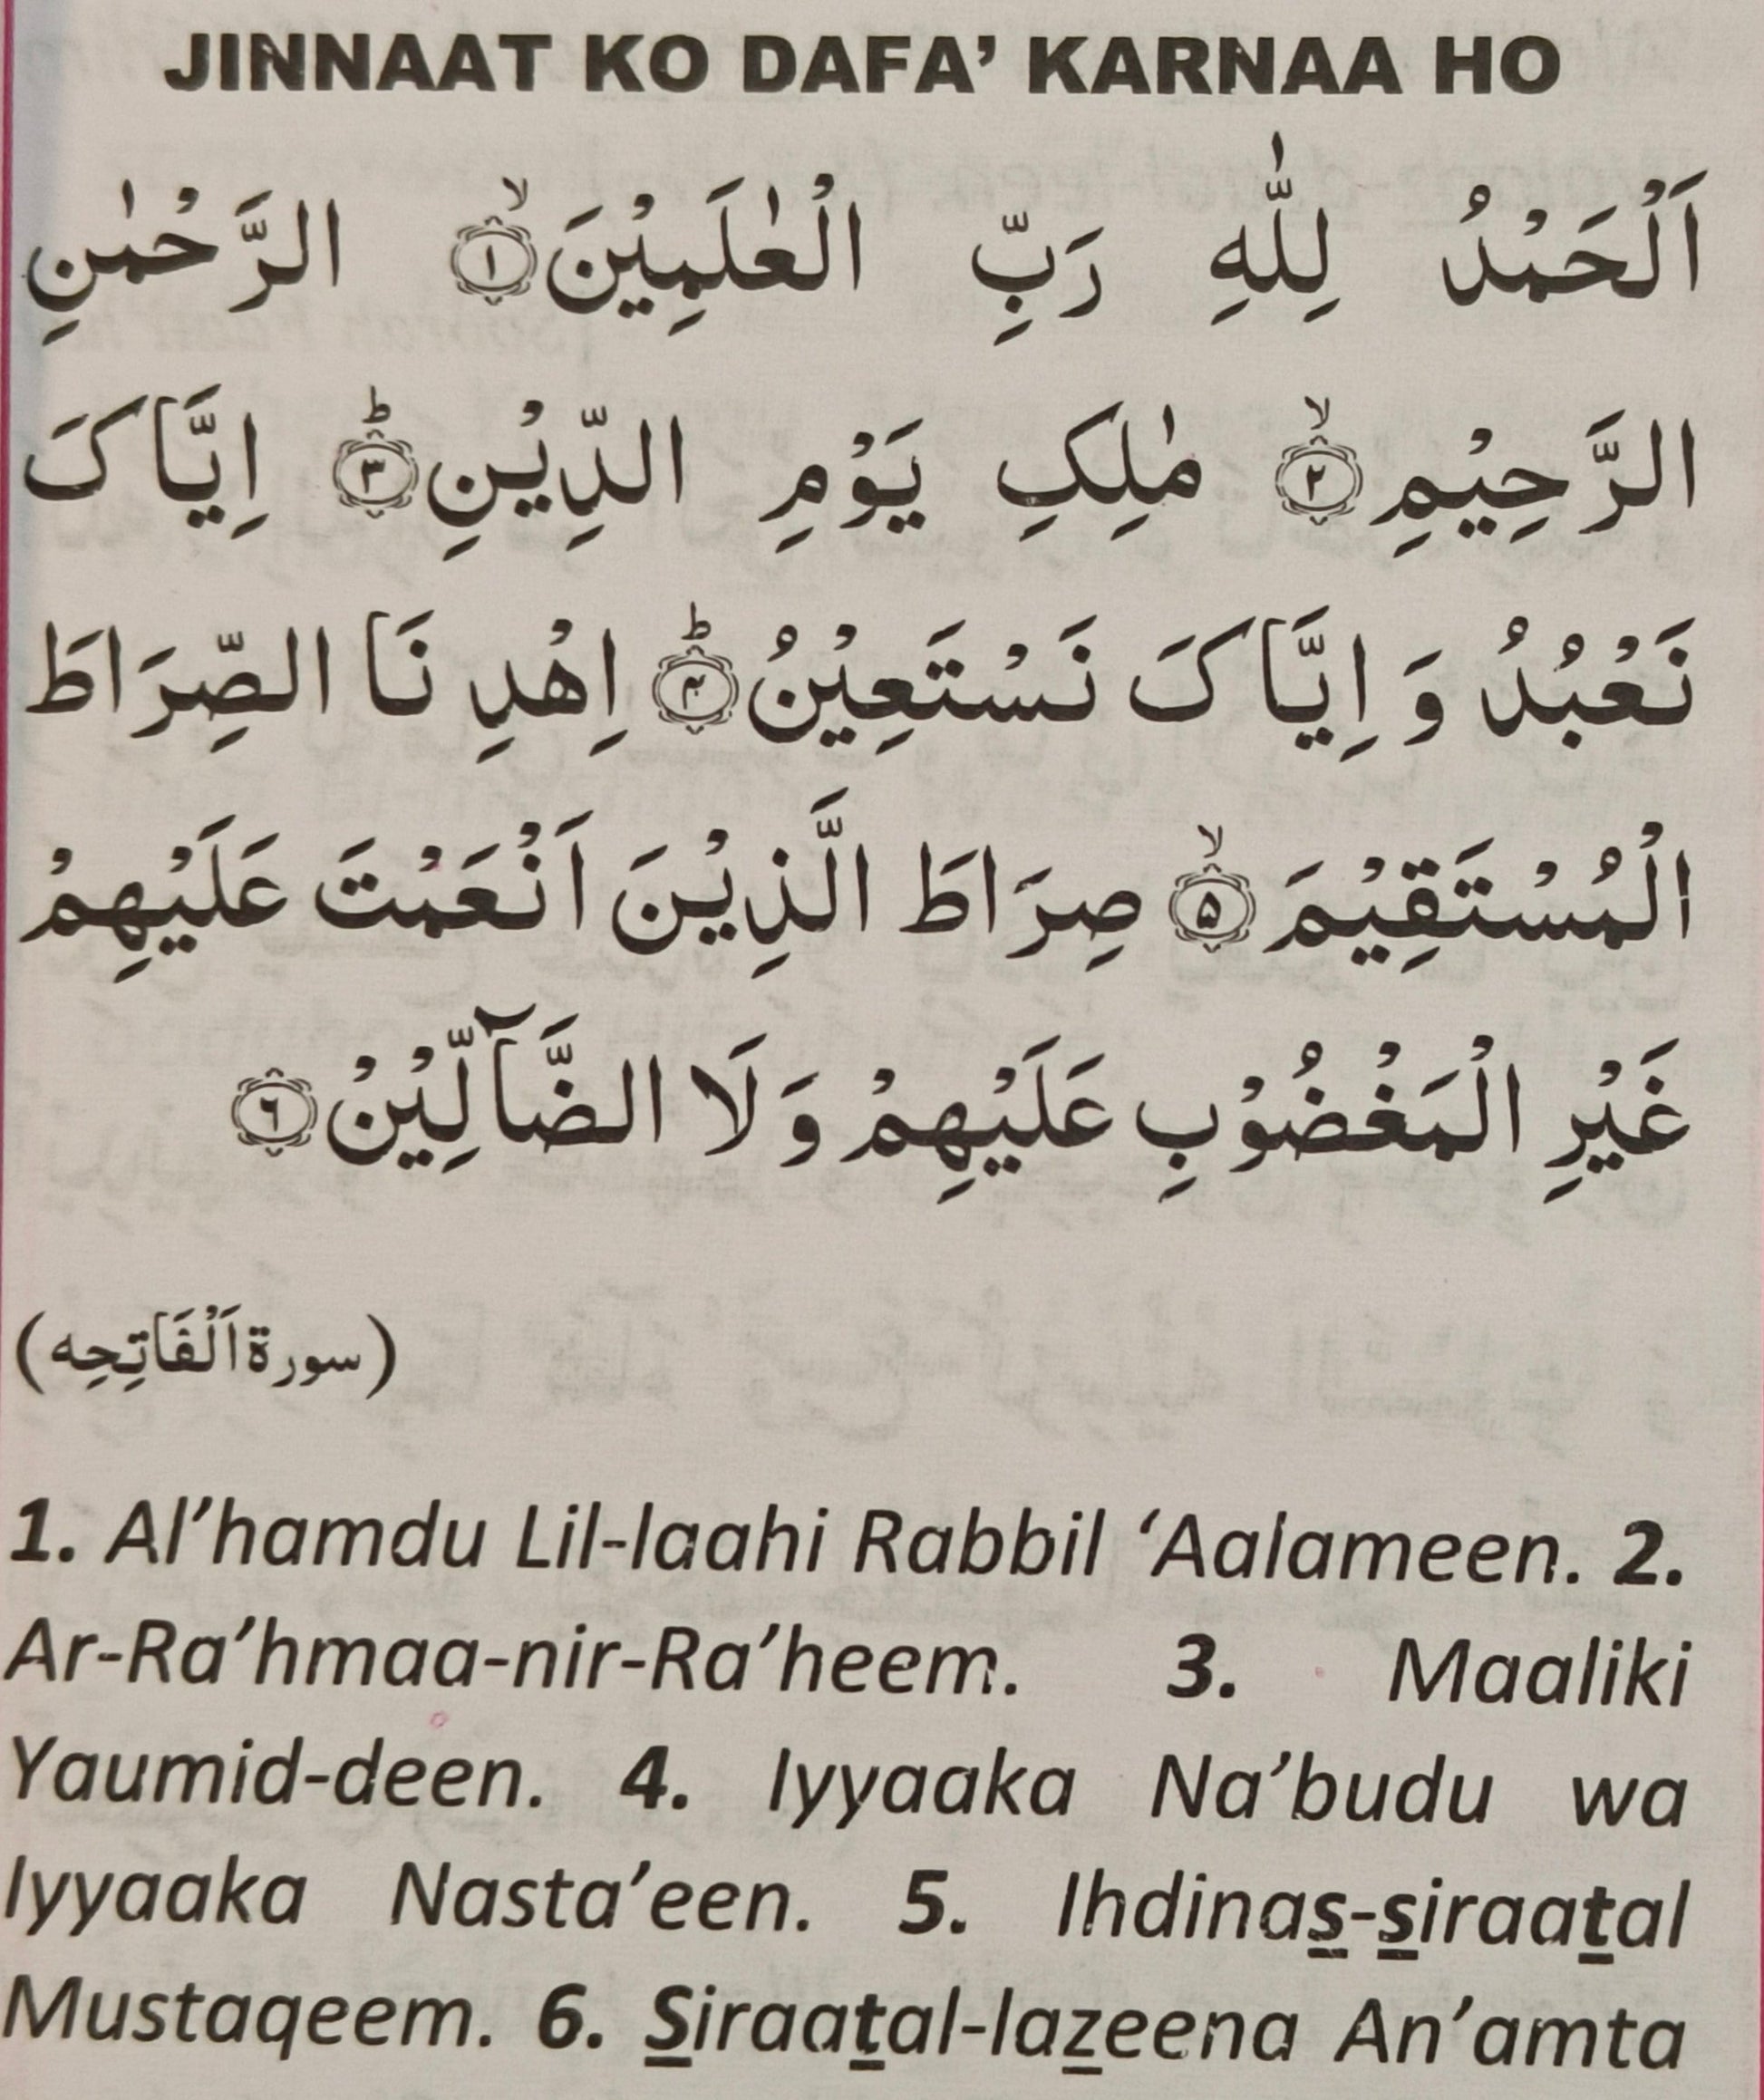 JINNAAT KO DAFA’ KARNAA HO
اَلْحَمْدُ لِلّٰهِ رَبِّ الْعٰلَمِیْنَۙ۝۱ الرَّحْمٰنِ
الرَّحِیْمِۙ۝۲ مٰلِكِ یَوْمِ الدِّیْنِؕ۝۳ اِیَّاكَ
نَعْبُدُ وَ اِیَّاكَ نَسْتَعِیْنُؕ۝۴ اِهْدِ نَا الصِّرَاطَ
الْمُسْتَقِیْمَۙ۝۵ صِرَاطَ الَّذِیْنَ اَنْعَمْتَ عَلَیْهِمْ
غَیْرِ الْمَغْضُوْبِ عَلَیْهِمْ وَلَا الضَّآلِّیْنْ۝۶
(سورة اَلْفَاتِحِه)
1. Al’hamdu Lil-laahi Rabbil ‘Aalameen. 2.
Ar-Ra’hmaa-nir-Ra’heem. 3. Maaliki
Yaumid-deen. 4. Iyyaaka Na’budu wa
Iyyaaka Nasta’een. 5. Ihdinas-siraatal
Mustaqeem. 6. Siraatal-lazeena An’amta